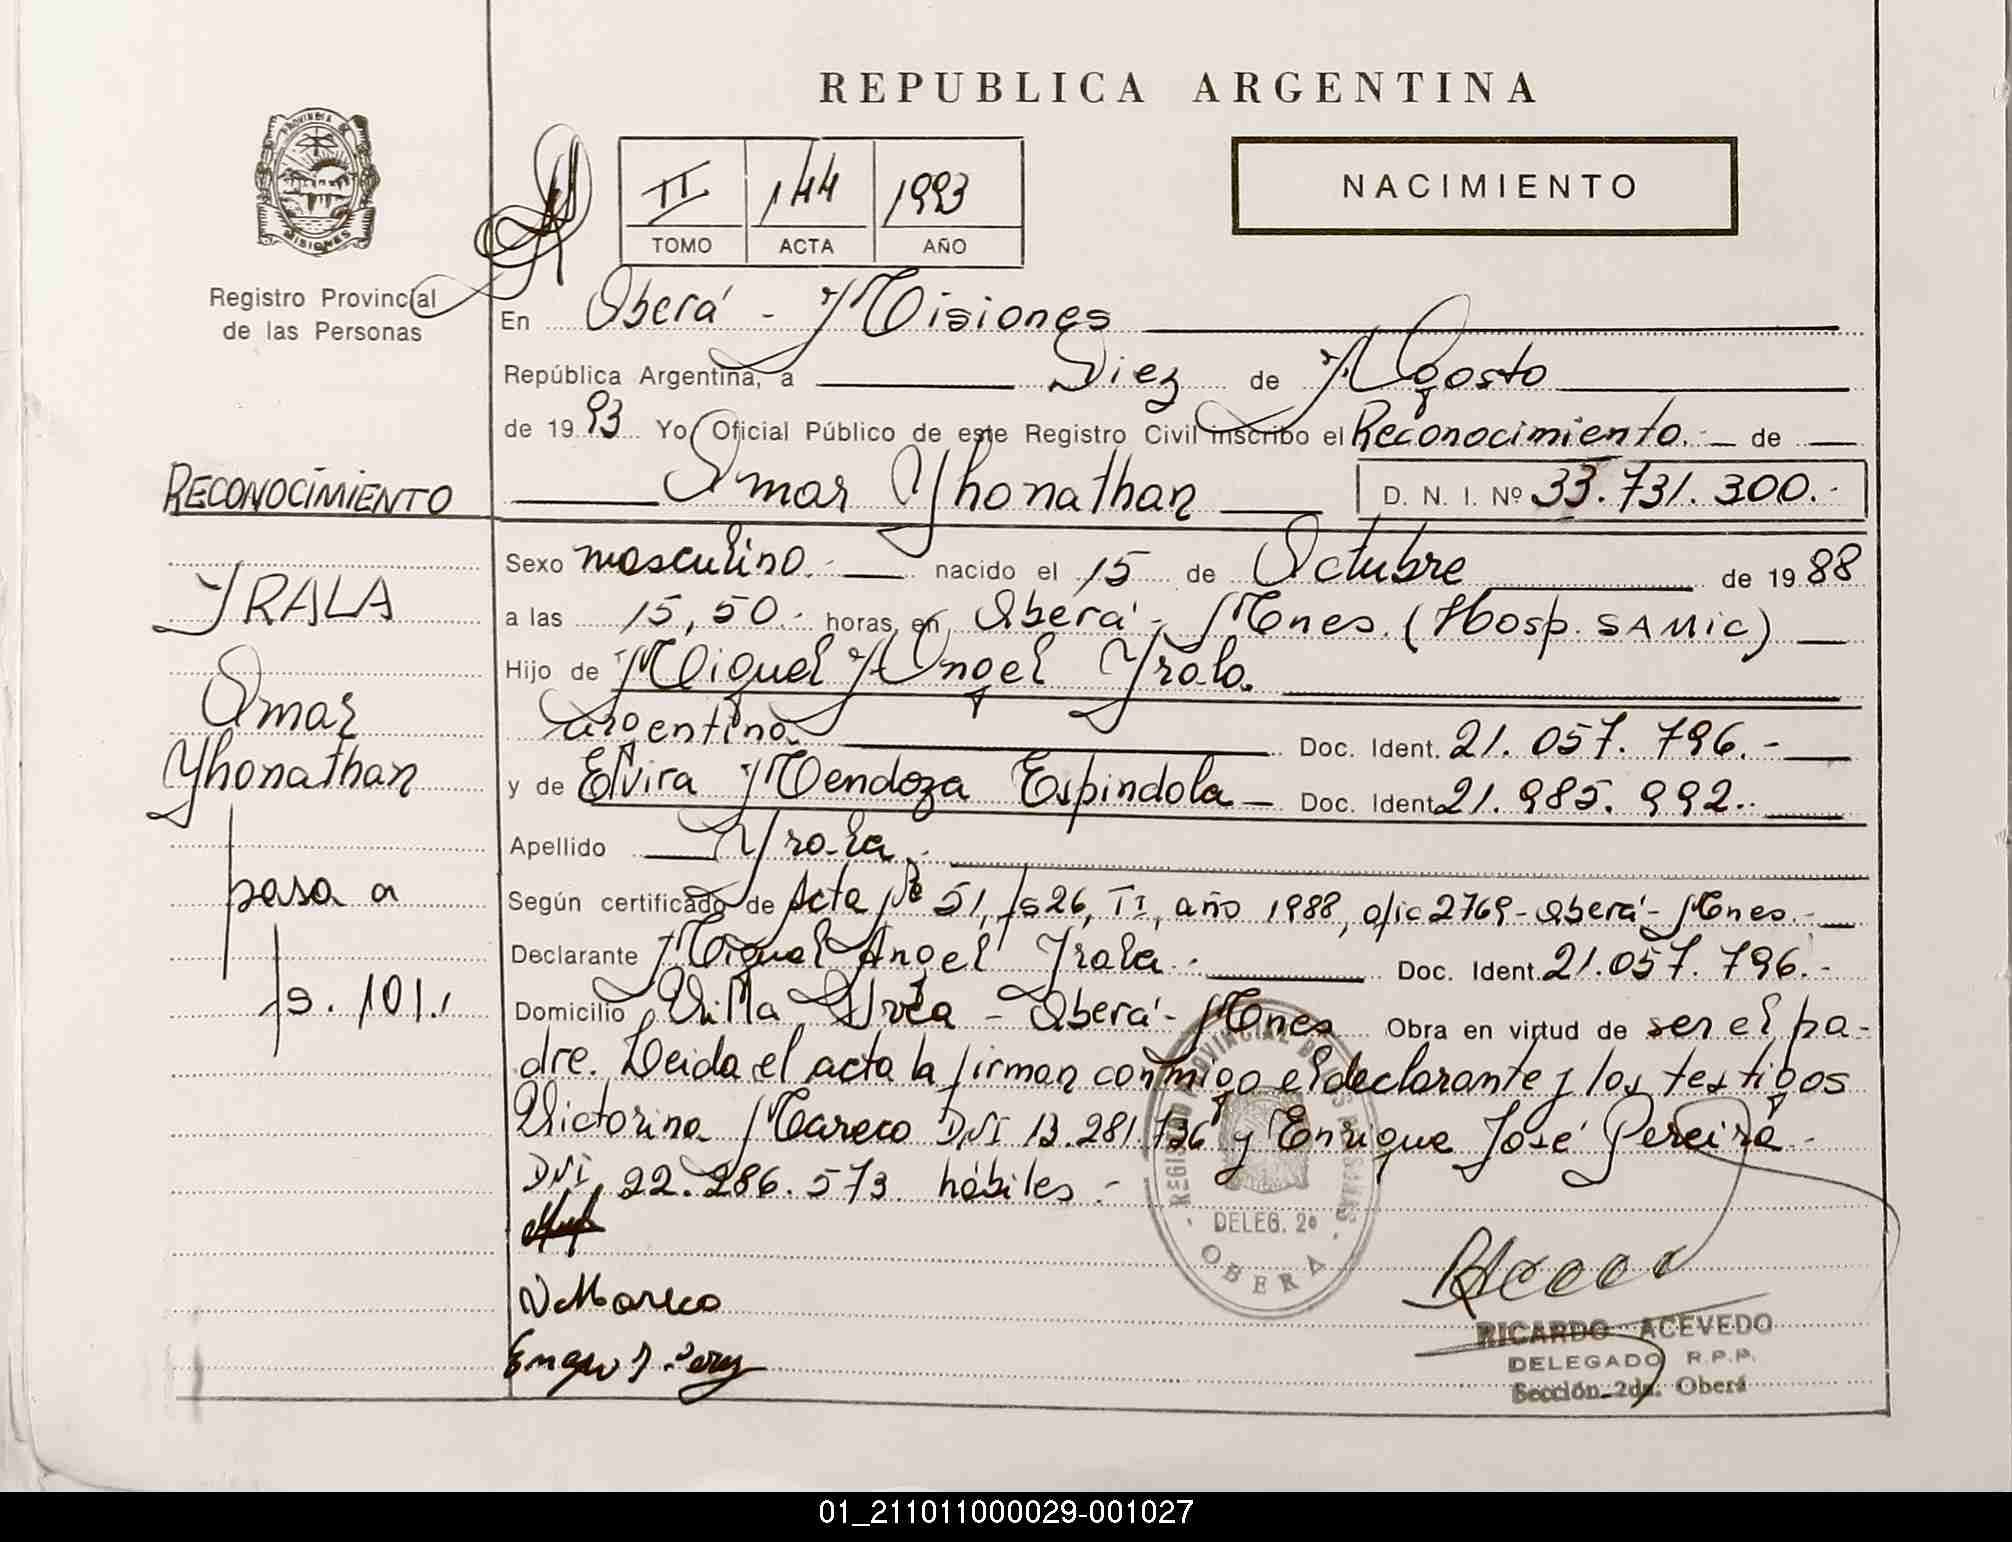 REPUBLICA ARGENTINA
PROVINCIA DE
MISIONES
Registro Provincial
de las Personas
II 144 1993
TOMO ACTA AÑO
NACIMIENTO
En Oberá - Misiones
República Argentina, a Diez de Agosto
de 1993 Yo Oficial Público de este Registro Civil inscribo el Reconocimiento.- de
Omar Yhonathan D. N. I. Nº 33.731.300.-
RECONOCIMIENTO
YRALA
Omar
Yhonathan
pasa a
fs. 101.
Sexo masculino.- nacido el 15 de Octubre de 1988
a las 15,50.- horas, en Oberá - Mnes. (Hosp. SAMIC)
Hijo de Miguel Angel Yrala.
argentino. Doc. Ident. 21.057.796.-
y de Elvira Mendoza Espindola - Doc. Ident. 21.985.992.-
Apellido Yrala.-
Según certificado de Acta Nº 51, fs 26, TI, año 1988, ofic 2769 - Oberá - Mnes.-
Declarante Miguel Angel Yrala.- Doc. Ident. 21.057.796.-
Domicilio Villa - Oberá - Mnes Obra en virtud de ser el pa-
dre. Leida el acta la firman conmigo el declarante y los testigos
Victorina Mareco DNI 13.281.736 y Enrique José Pereira -
DNI 22.286.573 hábiles.-
VMareco
REGISTRO PROVINCIAL DE LAS PERSONAS
DELEG. 2º
OBERA
RICARDO ACEVEDO
DELEGADO R.P.P.
Sección 2da. Oberá
01_211011000029-001027